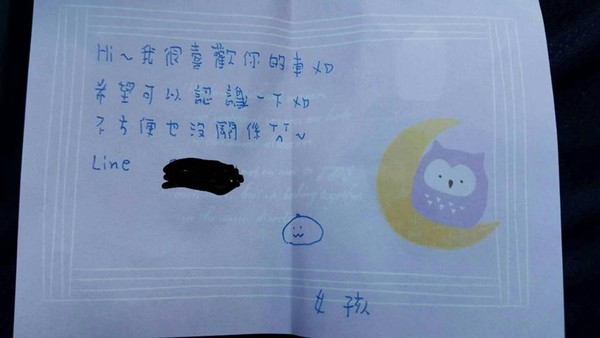 Hi~我很喜歡你的車XD
希望可以認識一下XD
不方便也沒關係T^T~
Line
女孩